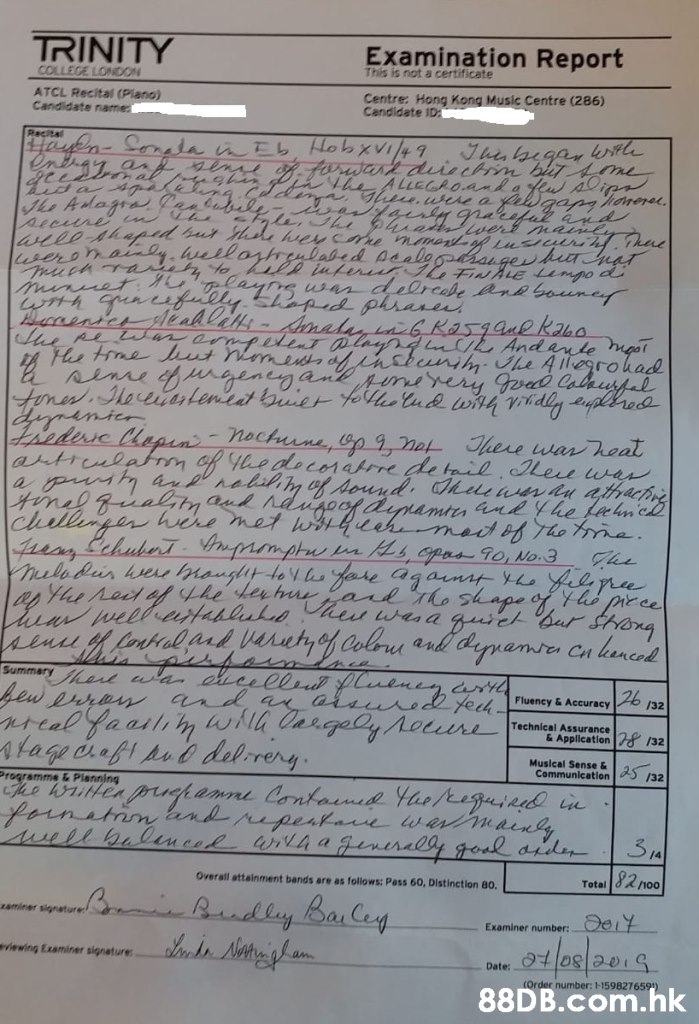 TRINITY
COLLEGE LONDON
Examination Report
This is not a certificate
ATCL Recital (Piano)
Candidate name:
Centre: Hong Kong Music Centre (286)
Candidate ID:
Recital
Haydn - Sonata in Eb Hob XVI/49 This began with
energy and sense of forward direction but some
occasional in the Allegro and a few slips
but a sparkling cadenza. There were a few gaps however.
The Adagio Cantabile was fairly graceful and
secure in the style. The phrases were mainly
well shaped but there were some moments of insecurity. There
were mainly well articulated scale passages but not
much variety to hold interest. The FINALE tempo di
minuet. The playing was delicate and bouncy
with gracefully shaped phrases.
Domenico Scarlatti - Sonatas in G K259 and K260
The was competent playing in the Andante most
of the time but moments of insecurity. The Allegro had
a sense of urgency and some very good colourful
tones. The excitement built to the end with vividly explored
dynamics
Frederic Chopin - Nocturne, op 9, no1 There was neat
articulation of the decorative detail. There was
a purity and nobility of sound. There was an attractive
tonal quality and range of dynamics and the technical
challenges were met with ease most of the time.
Franz Schubert - Impromptu in opus 90, No.3 The
melodies were brought to the fore against the filigree
of the rest of the texture and the shape of the piece
was well established. There was a quiet but strong
sense of control and variety of colour and dynamics enhanced
this performance.
Summary
There was excellent fluency with
few errors and an assured tech-
nical facility with largely secure
stagecraft and delivery.
Fluency & Accuracy 26 /32
Technical Assurance & Application 28 /32
Musical Sense & Communication 25 /32
Programme & Planning
The written programme contained the required in
formation and repertoire was mainly
well balanced with a generally good order 3 /4
Overall attainment bands are as follows: Pass 60, Distinction 80.
Total 82 /100
Examiner signature: Bailey
Examiner number: 2017
Reviewing Examiner signature: Linda Nottingham
Date: 27/08/2019
(Order number: 1-1598276591)
88DB.com.hk